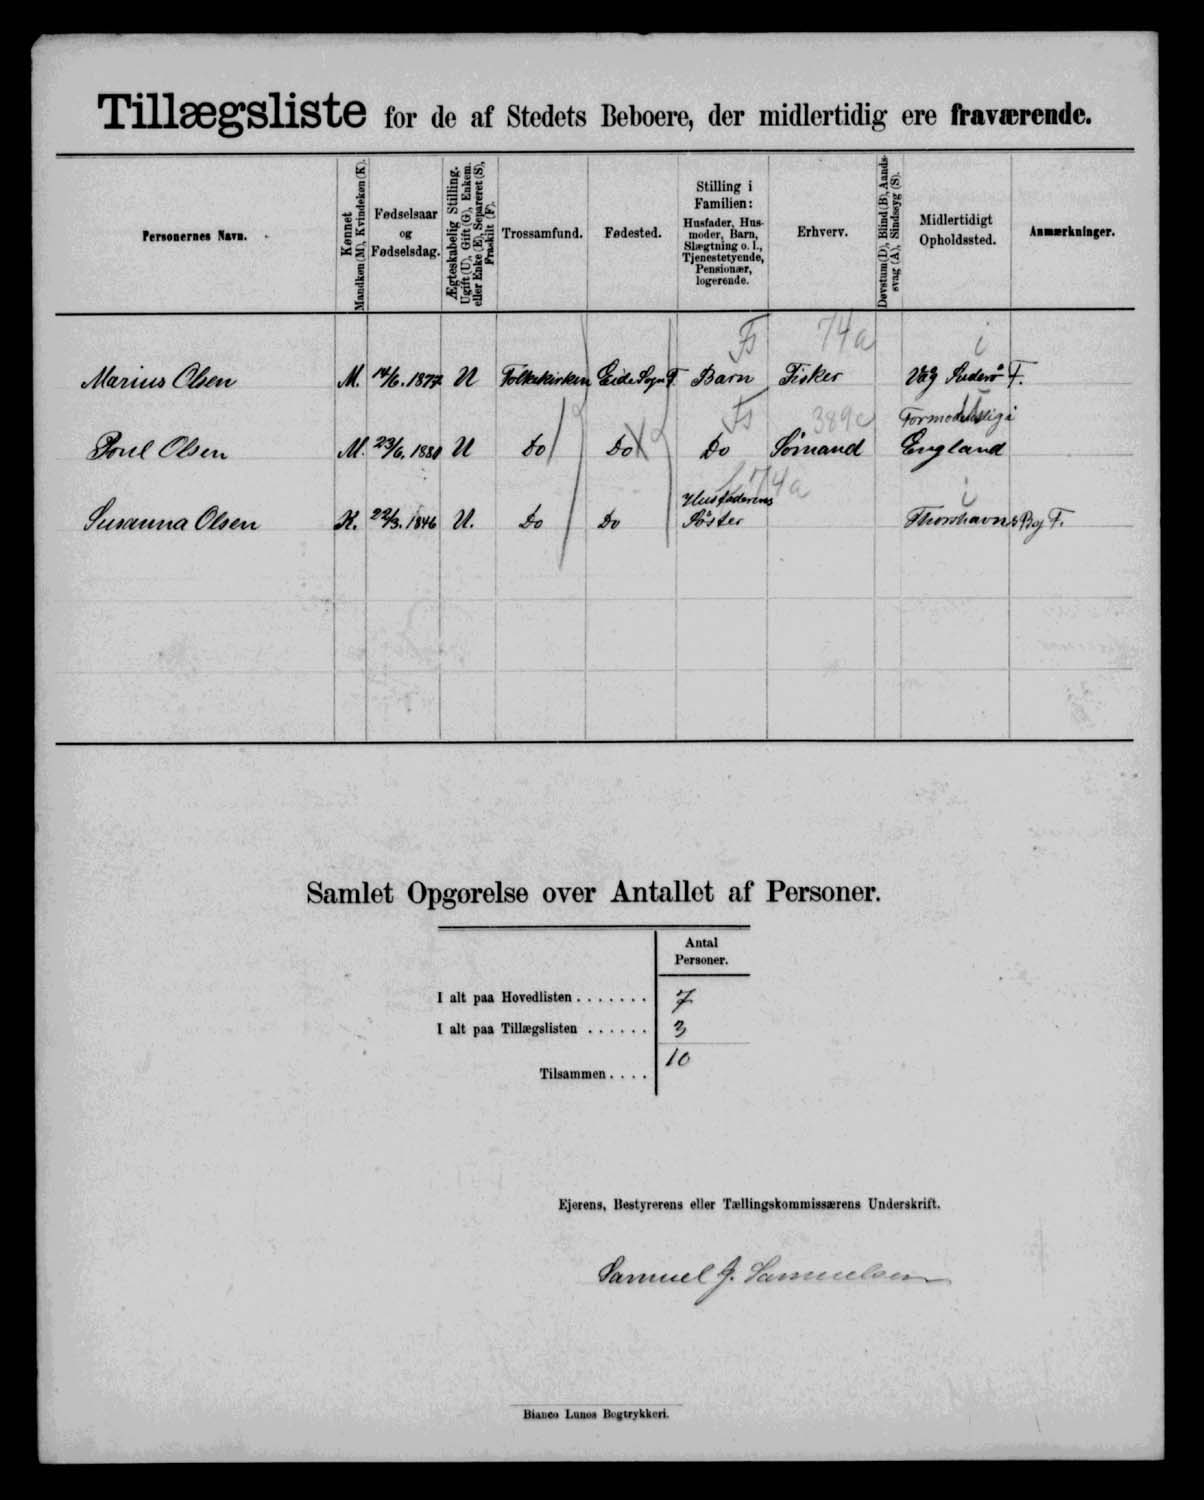 Tillægsliste for de af Stedets Beboere, der midlertidig ere fraværende.
Personernes Navn.
Kønnet
Mandkøn (M), Kvindekøn (K).
Fødselsaar
og
Fødselsdag.
Ægteskabelig Stilling.
Ugift (U), Gift (G), Enkem.
eller Enke (E), Separeret (S),
Fraskilt (F).
Trossamfund.
Fødested.
Stilling i
Familien:
Husfader, Hus-
moder, Barn,
Slægtning o. l.,
Tjenestetyende,
Pensionær,
logerende.
Erhverv.
Døvstum (D), Blind (B), Aands-
svag (A), Sindssyg (S).
Midlertidigt
Opholdssted.
Anmærkninger.
Fs 74a i
Marius Olsen M. 14/6. 1877 U Folkekirken Eide Sogn F. Barn Fisker Vaag Suderö F.
Fs 389c Formodentlig i
Poul Olsen M. 23/6. 1880 U Do Do Do Sömand England
74a i
Husfaderens
Susanna Olsen K. 22/3. 1846 U. Do Do Söster Thorshavns By F.
Samlet Opgørelse over Antallet af Personer.
Antal
Personer.
I alt paa Hovedlisten . . . . . . . 7
I alt paa Tillægslisten . . . . . . 3
Tilsammen . . . . 10
Ejerens, Bestyrerens eller Tællingskommissærens Underskrift.
Samuel J. Samuelsen
Bianco Lunos Bogtrykkeri.